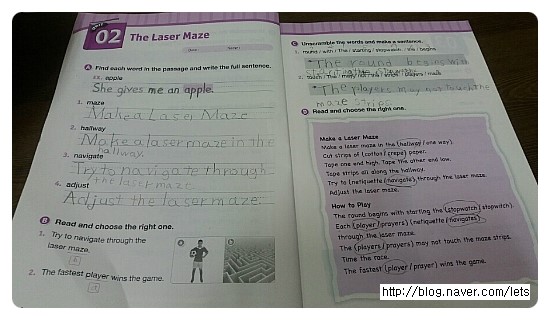 UNIT
02 The Laser Maze
Date
A Find each word in the passage and write the full sentence.
ex. apple
She gives me an apple.
1. maze
Make a Laser Maze
2. hallway
Make a laser maze in the
hallway
3. navigate
Try to navigate through
the laser maze
4. adjust
Adjust the laser maze.
B Read and choose the right one.
1. Try to navigate through the
laser maze.
2. The fastest player wins the game.
C Unscramble the words and make a sentence.
1. round / with / The / starting / stopwatch / the / begins
The round begins with
starting the stopwatch
2. touch / The / may / not / the / strips / players / maze
The players may not touch the
maze strips
D Read and choose the right one.
Make a Laser Maze
Make a laser maze in the (hallway / one way).
Cut strips of (cotton / crepe) paper.
Tape one end high. Tape the other end low.
Tape strips all along the hallway.
Try to (netiquette / navigate) through the laser maze.
Adjust the laser maze.
How to Play
The round begins with starting the (stopwatch / stopwitch).
Each (player / prayers) (netiquette / navigates)
through the laser maze.
The (players / prayers) may not touch the maze strips.
Time the race.
The fastest (player / prayer) wins the game.
http://blog.naver.com/lets